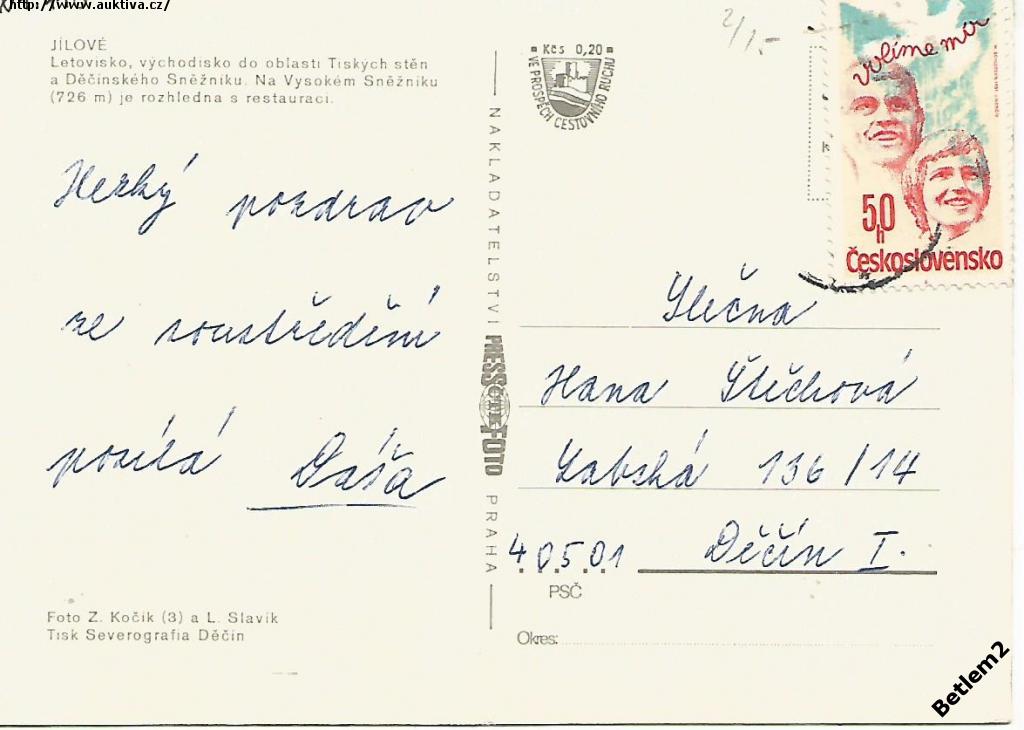 http://www.auktiva.cz/
JÍLOVÉ
Letovisko, východisko do oblasti Tiských stěn
a Děčínského Sněžníku. Na Vysokém Sněžníku
(726 m) je rozhledna s restaurací.
Hezký pozdrav
ze soustředění
posílá Dáša
Foto Z. Kočík (3) a L. Slavík
Tisk Severografia Děčín
NAKLADATELSTVÍ PRESSFOTO PRAHA
Kčs 0,20
VE PROSPĚCH CESTOVNÍHO RUCHU
2/15-
volíme mír
50 h
Československo
Slečna
Hana Štěchová
Labská 136/14
40501 Děčín I.
PSČ
Okres:
Betlem2